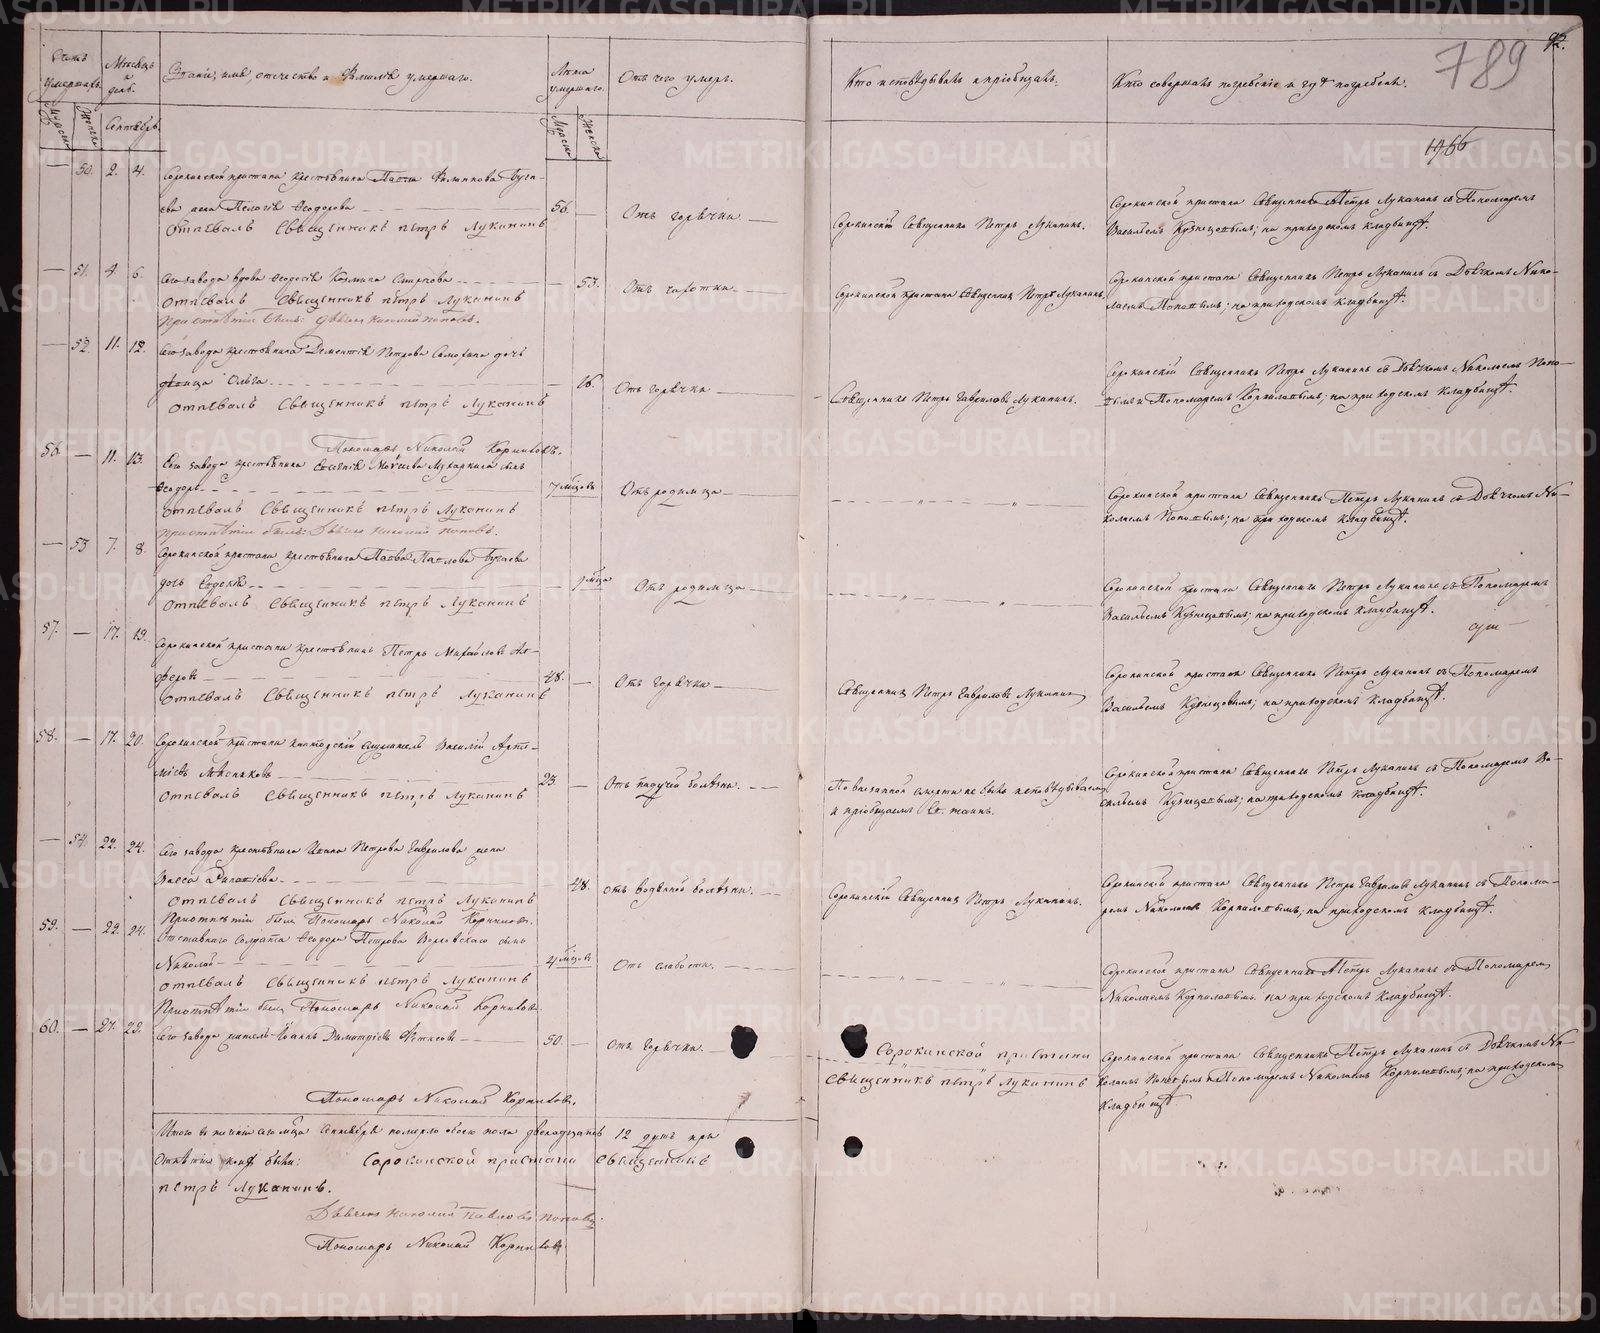 Счетъ умершихъ.
Мѣсяцъ и день.
Званіе, имя, отечество и Фамилія умершаго.
Лѣта умершаго.
Отъ чего умеръ.
Кто исповѣдывалъ и пріобщалъ.
Кто совершалъ погребеніе и гдѣ погребенъ.
92.
789
Мужска
Женска
Сентябрь.
Мужска
Женска
1966
50. 2. 4.
Сорокинской пристани крестьянина Павла Филиппова Буга-
ева жена Пелагія Ѳеодорова
56.
Отъ горячки
Сорокинскій Священникъ Петръ Луканинъ.
Сорокинской пристани Священникъ Петръ Луканинъ съ Пономаремъ
Васильемъ Кузнецовымъ; на приходскомъ кладбищѣ.
Отпевалъ Сввщенникъ петръ Луканинъ
51. 4. 6.
Сего завода вдова Ѳеодосія Козмина Смирнова
53.
Отъ чахотки
Сорокинской пристани Священникъ Петръ Луканинъ
Сорокинской пристани Священникъ Петръ Луканинъ съ Дьячкомъ Нико-
лаемъ Поповымъ; на приходскомъ кладбищѣ.
Отпевалъ Сввщенникъ петръ Луканинъ
52. 11. 12.
Сего завода крестьянина Дементія Петрова Самохина дочь
дѣвица Ольга
16.
Отъ горячки
Священникъ Петръ Гавриловъ Луканинъ.
Сорокинскій Священникъ Петръ Луканинъ съ Дьячкомъ Николаемъ Попо-
вымъ и Пономаремъ Корниловымъ; на приходскомъ кладбищѣ.
Отпевалъ Сввщенникъ петръ Луканинъ
Пономарь Николай Корниловъ.
56. 11. 13.
Сего завода крестьянина Евгенія Моѵсеева сынъ
Ѳеодоръ
7 мѣсяцовъ
Отъ родимца
Сорокинской пристани Священникъ Петръ Луканинъ съ Дьячкомъ Ни-
колаемъ Поповымъ; на приходскомъ кладбищѣ.
Отпевалъ Сввщенникъ петръ Луканинъ
53 7. 8.
Сорокинской пристани крестьянина Павла Павлова Бугаева
дочь Евдокія
1 мѣсяца
Отъ родимца
Сорокинской пристани Священникъ Петръ Луканинъ съ Пономаремъ
Васильемъ Кузнецовымъ; на приходскомъ кладбищѣ.
Отпевалъ Сввщенникъ петръ Луканинъ
57. 17. 19.
Сорокинской пристани крестьянинъ Петръ Михайловъ Ал-
феровъ
48.
Отъ горячки
Священникъ Петръ Гавриловъ Луканинъ
Сорокинской пристани Священникъ Петръ Луканинъ съ Пономаремъ
Васильемъ Кузнецовымъ; на приходскомъ кладбищѣ.
Отпевалъ Сввщенникъ петръ Луканинъ
58. 17. 20.
Сорокинской пристани конторскій служитель Василій Арте-
міевъ Мясниковъ
23
Отъ падучей болѣзни.
По внезапной смерти не былъ исповѣдываемъ
и пріобщаемъ Св. таинъ.
Сорокинской пристани Священникъ Петръ Луканинъ съ Пономаремъ Ва-
сильемъ Кузнецовымъ; на приходскомъ кладбищѣ.
Отпевалъ Сввщенникъ петръ Луканинъ
54. 22. 24.
Сего завода крестьянина Ивана Петрова Гаврилова жена
Васса
48.
Отъ водяной болѣзни.
Сорокинскій Священникъ Петръ Луканинъ.
Сорокинской пристани Священникъ Петръ Гавриловъ Луканинъ съ Понома-
ремъ Николаемъ Корниловымъ; на приходскомъ кладбищѣ.
Отпевалъ Сввщенникъ петръ Луканинъ
Приотпѣтіи былъ Пономарь Николай Корниловъ.
59. 22. 24.
Отставнаго солдата Ѳеодора Петрова сынъ
Николай
4 мѣсяцовъ
Отъ слабости.
Сорокинской пристани Священникъ Петръ Луканинъ съ Пономаремъ
Николаемъ Корниловымъ. на приходскомъ кладбищѣ.
Отпевалъ Сввщенникъ петръ Луканинъ
Приотпѣтіи былъ Пономарь Николай Корниловъ.
60. 27. 29.
Сего завода житель Іоаннъ Димитріевъ Фетисовъ
50.
Отъ горячки.
Сорокинской пристани
Сввщенникъ петръ Луканинъ
Сорокинской пристани Священникъ Петръ Луканинъ съ Дьячкомъ Ни-
колаемъ Поповымъ и Пономаремъ Николаемъ Корниловымъ; на приходскомъ
кладбищѣ
Пономарь Николай Корниловъ.
Итого въ теченіи сего мѣсяца Сентября померло обоего пола двенадцать 12 душъ при
Отпѣтіи коихъ были: Сорокинской пристани Сввщенникъ
петръ Луканинъ.
Дьячекъ Николай Павловъ Поповъ.
Пономарь Николай Корниловъ.
METRIKI.GASO-URAL.RU